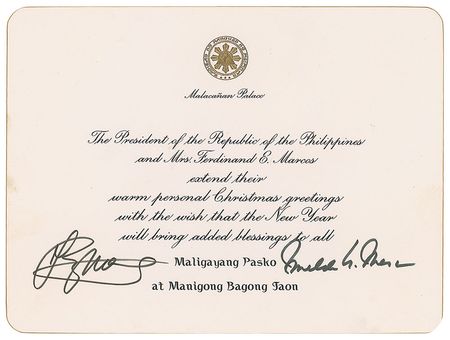 Malacañan Palace
The President of the Republic of the Philippines
and Mrs. Ferdinand E. Marcos
extend their
warm personal Christmas greetings
with the wish that the New Year
will bring added blessings to all
Maligayang Pasko
at Manigong Bagong Taon